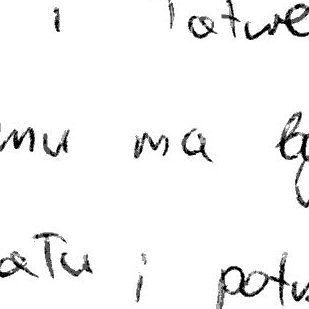 i łatwe
emu ma by
atu i potw